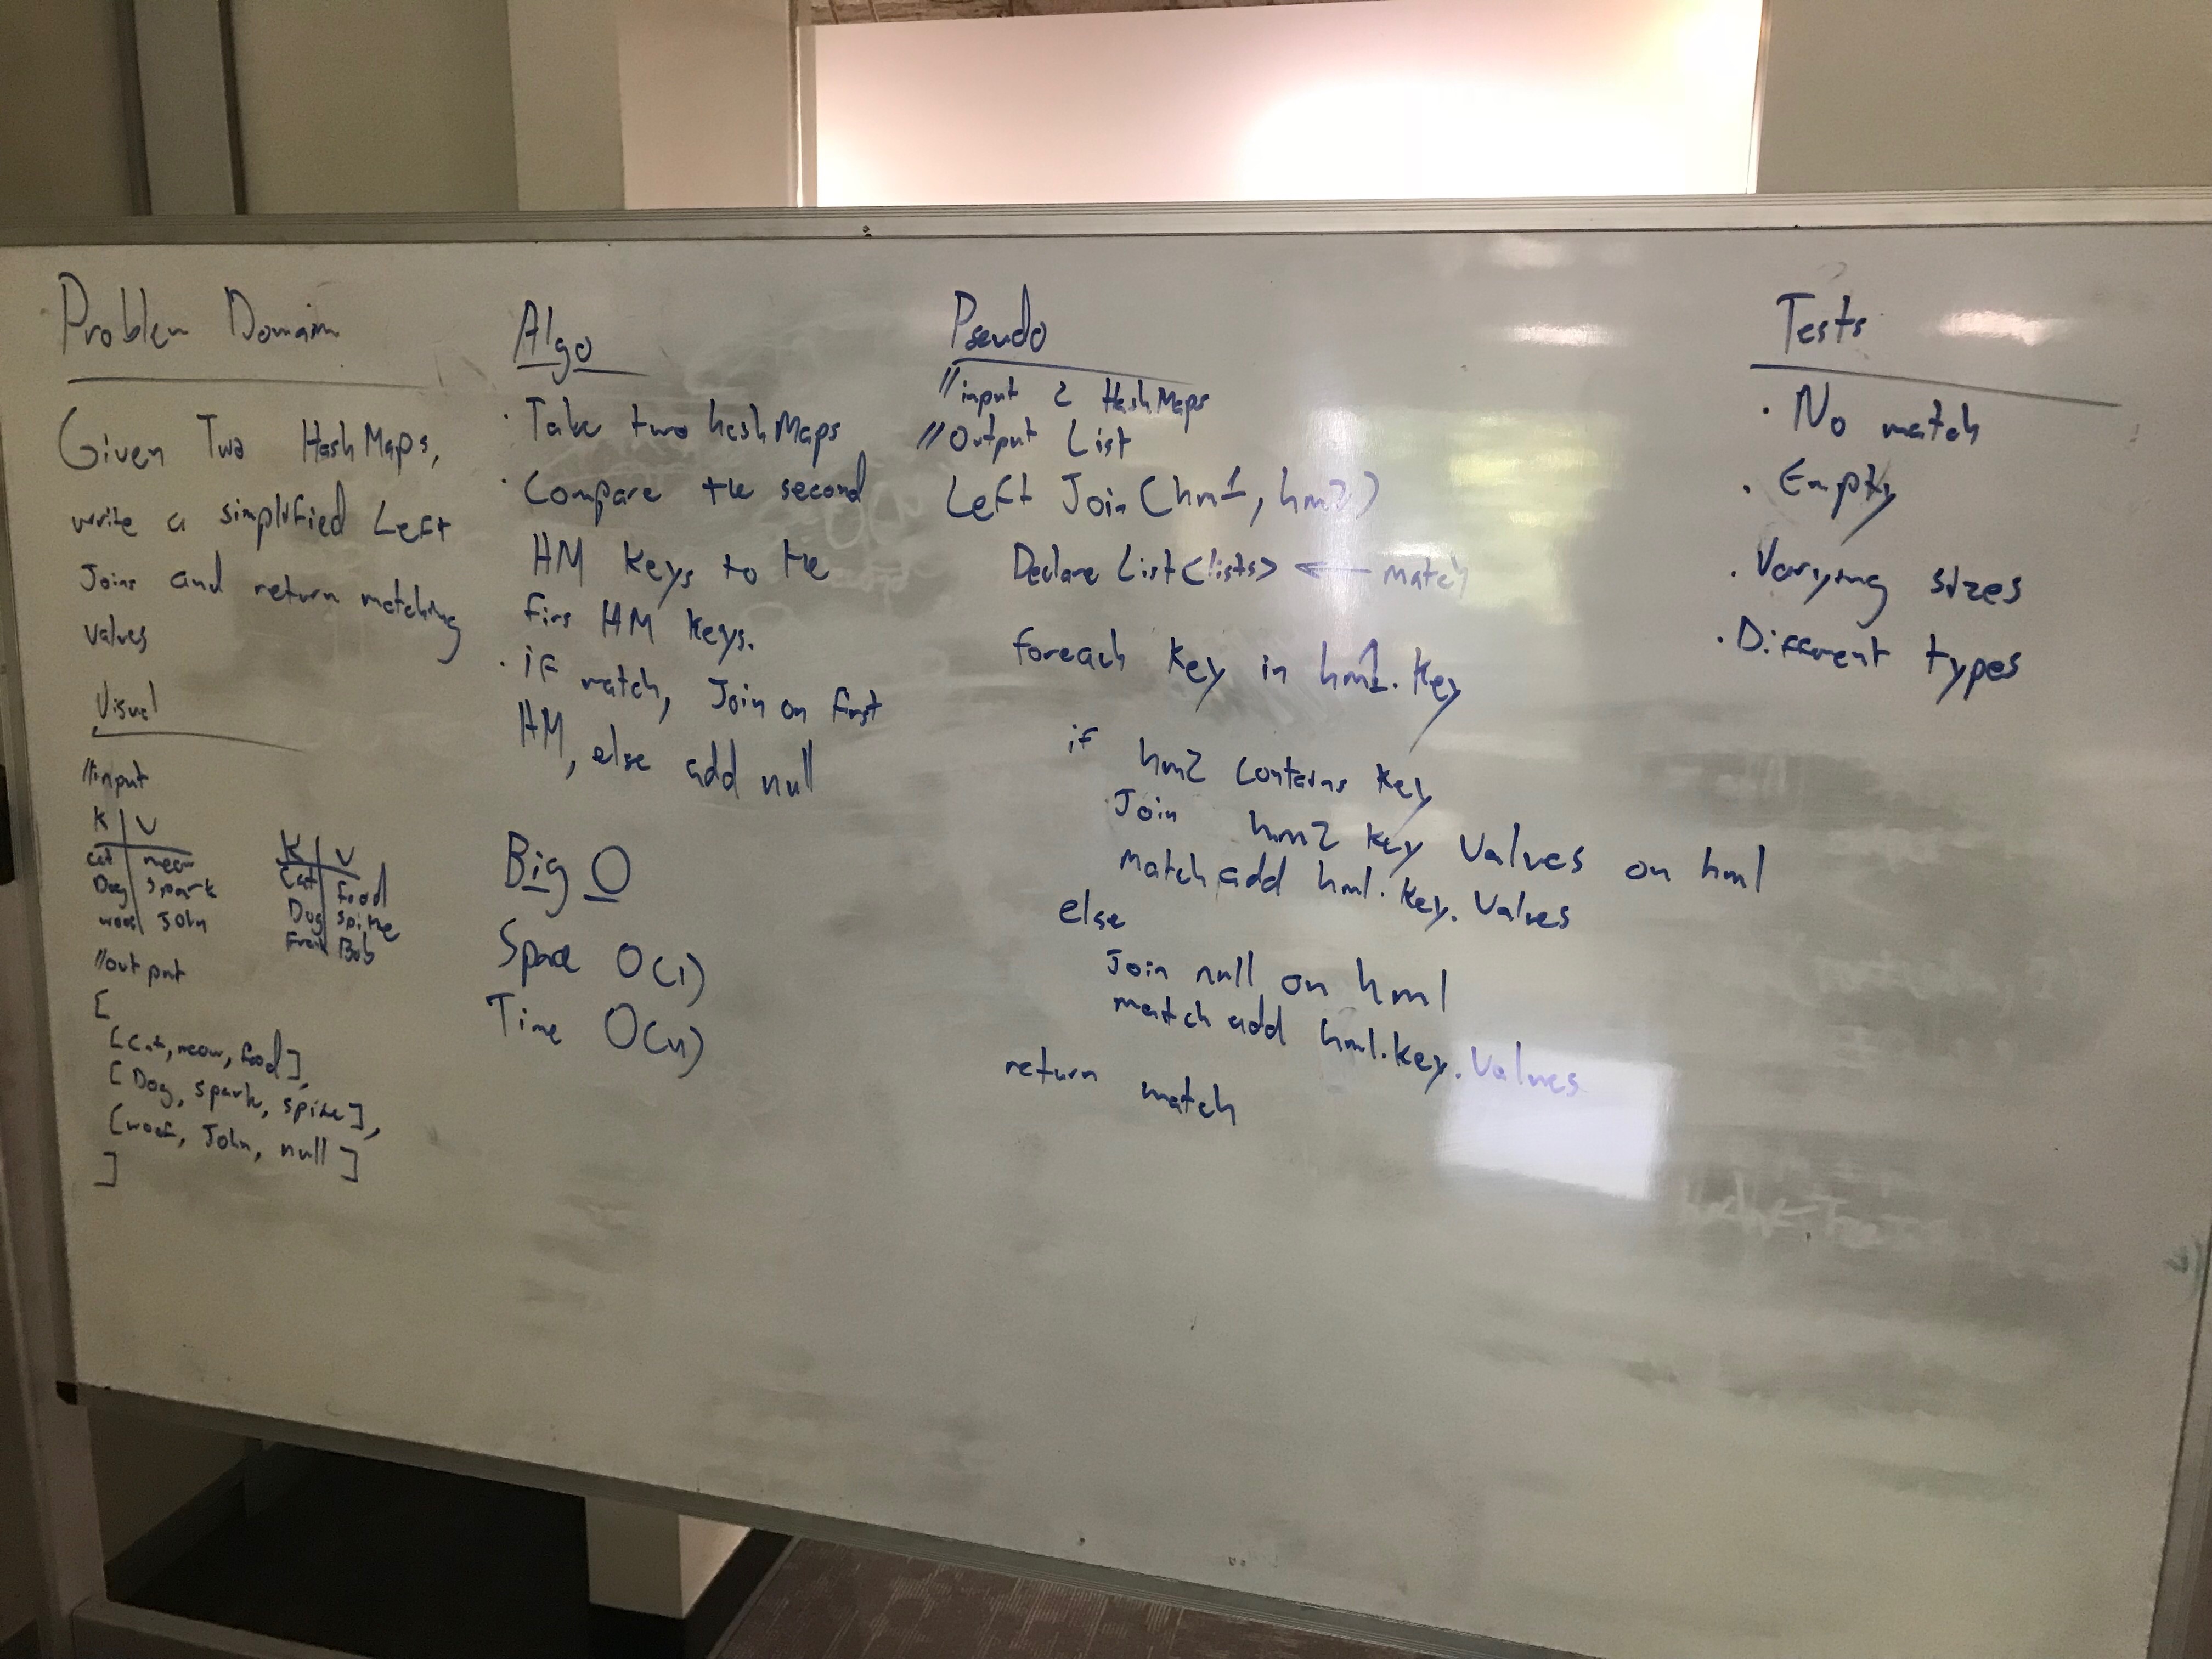 Problem Domain
Given Two HashMaps,
write a simplified Left
Joins and return matching
values
Visual
//input
K | V
cat | meow
Dog | spark
woof | John
K | V
Cat | food
Dog | spike
Bob
//output
[
[Cat, meow, food],
[Dog, spark, spike],
[woof, John, null]
]
Algo
· Take two hashMaps
· Compare the second
HM keys to the
firs HM keys.
· if match, Join on first
HM, else add null
Big O
Space O(1)
Time O(n)
Pseudo
//input 2 HashMaps
//Output List
Left Join (hm1, hm2)
Declare List<lists> ← match
foreach key in hm1.key
if hm2 contains key
Join hm2 key values on hm1
match add hm1.key.values
else
Join null on hm1
match add hm1.key.values
return match
Tests
· No match
· Empty
· Varying sizes
· Different types